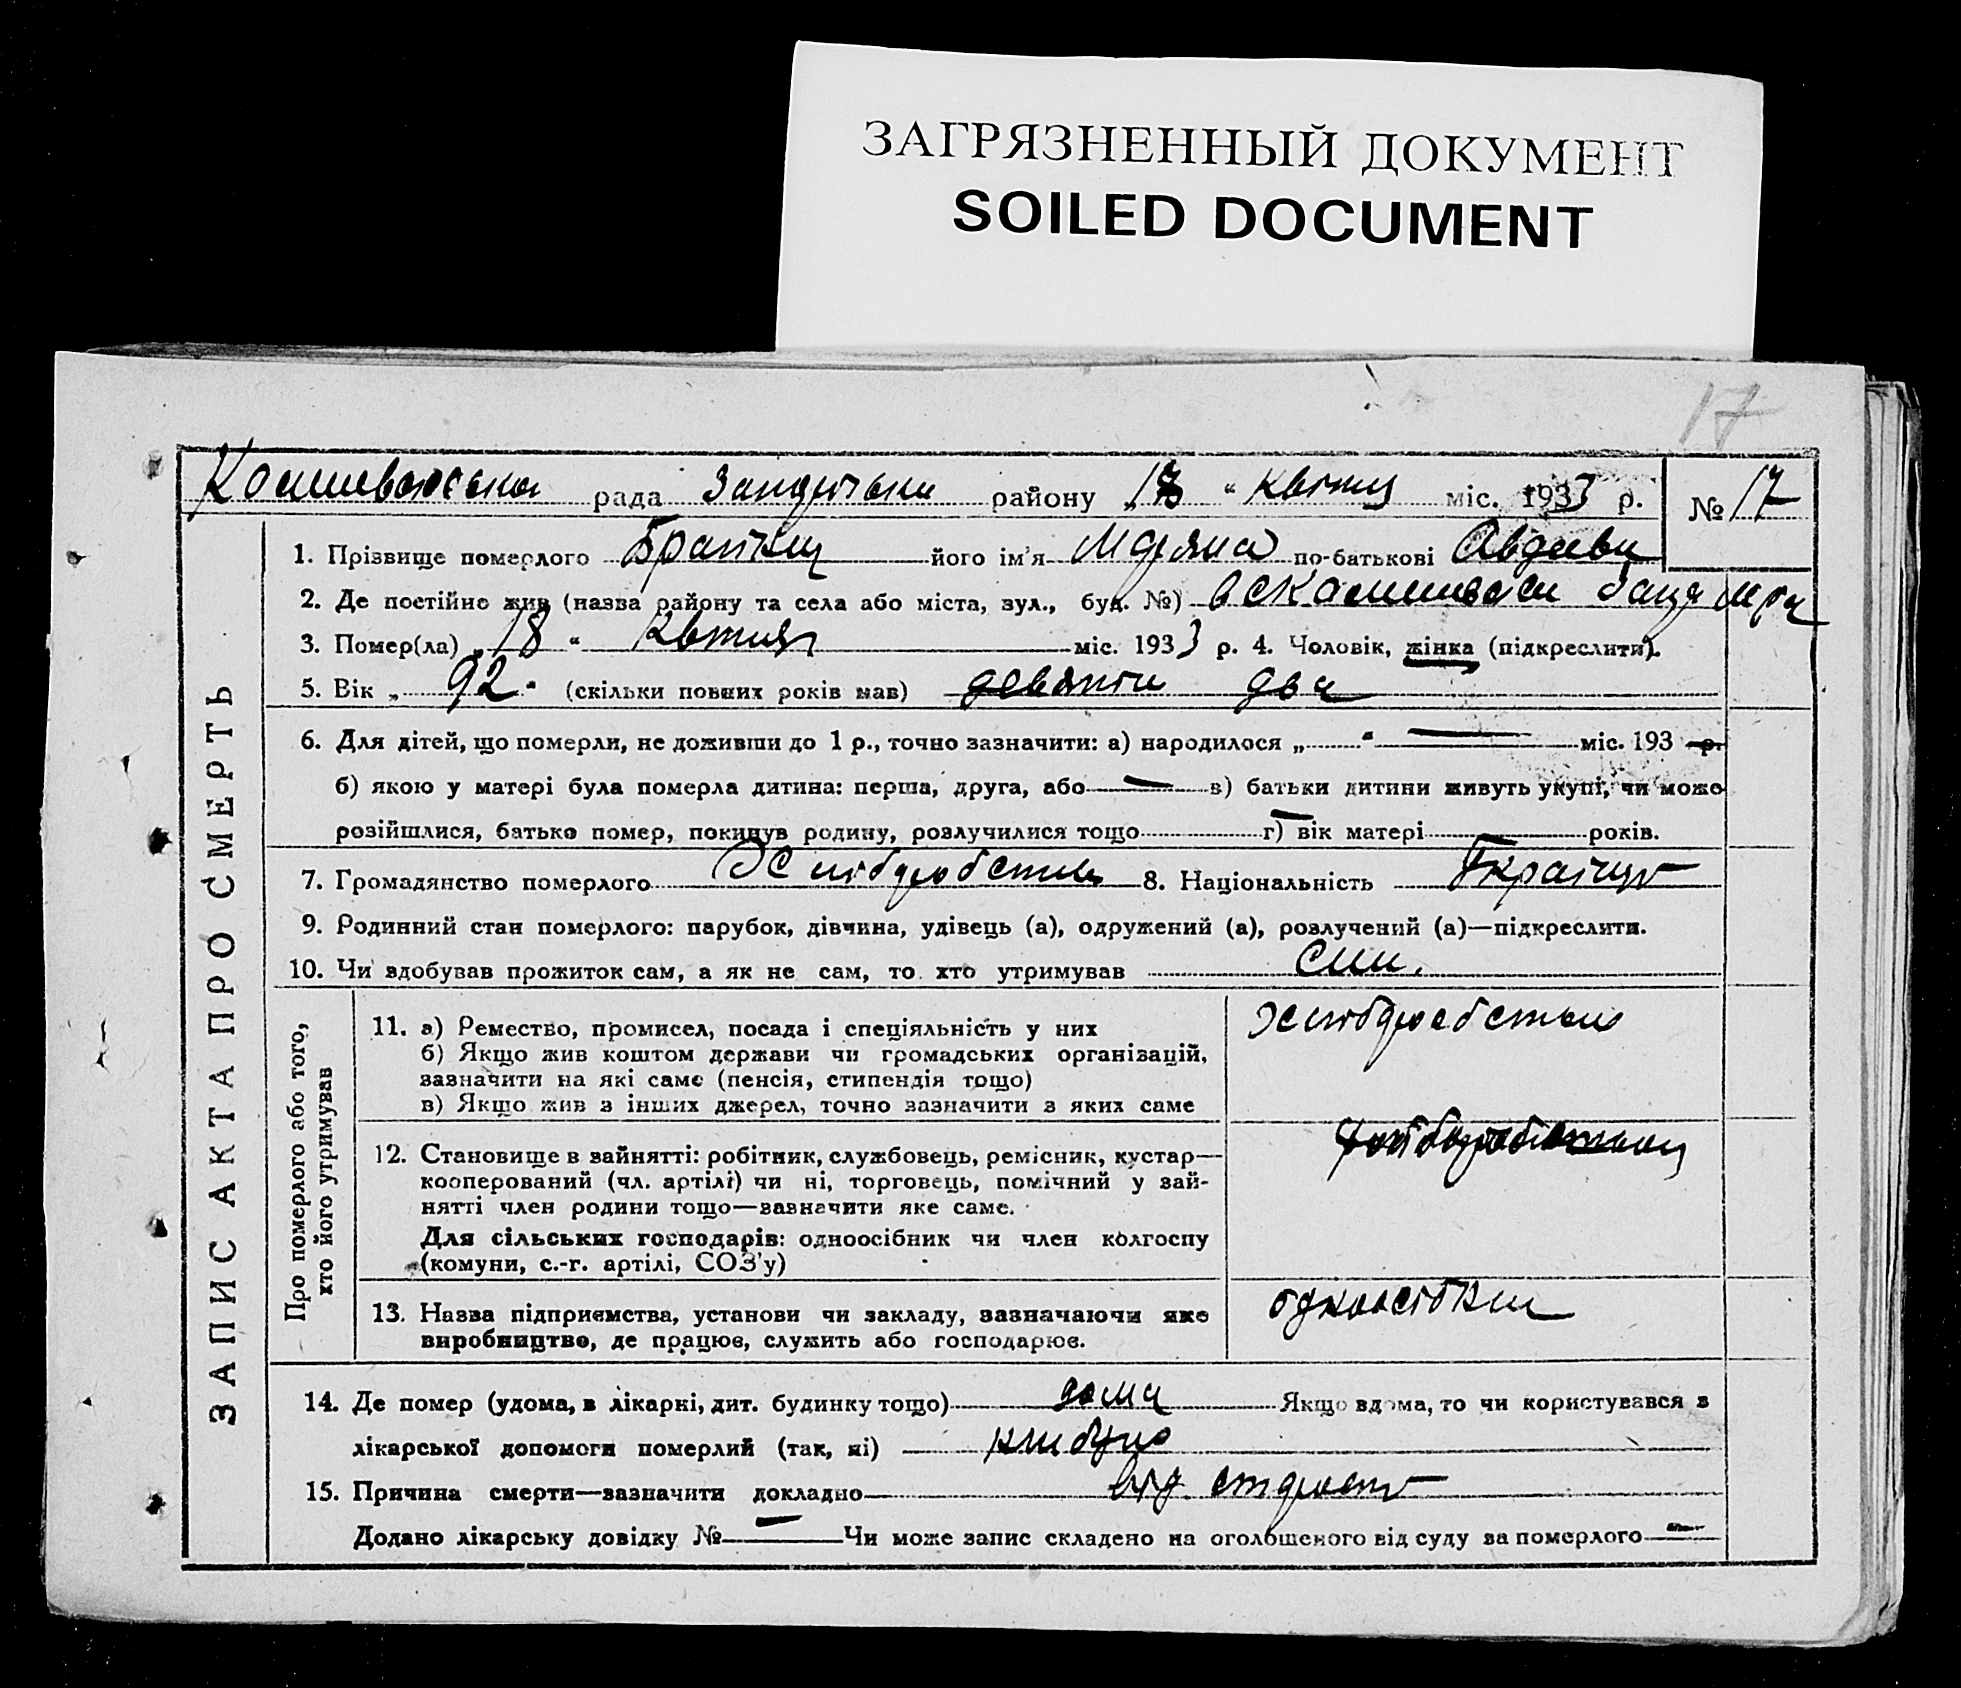 ЗАГРЯЗНЕННЫЙ ДОКУМЕНТ
SOILED DOCUMENT
17
рада району міс. 1933 р. № 17
1. Прізвище померлого його ім'я по-батькові
2. Де постійно жив (назва району та села або міста, вул., буд. №)
3. Помер(ла) „ 18 “ міс. 1933 р. 4. Чоловік, жінка (підкреслити).
5. Вік „ 92 “ (скільки повних років мав) два
6. Для дітей, що померли, не доживши до 1 р., точно зазначити: а) народилося „ “ — міс. 193 р.
б) якою у матері була померла дитина: перша, друга, або — в) батьки дитини живуть укупі, чи може
розійшлися, батько помер, покинув родину, розлучилися тощо г) вік матері років.
7. Громадянство померлого 8. Національність
9. Родинний стан померлого: парубок, дівчина, удівець (а), одружений (а), розлучений (а)—підкреслити.
10. Чи здобував прожиток сам, а як не сам, то хто утримував
ЗАПИС АКТА ПРО СМЕРТЬ
Про померлого або того,
хто його утримував
11. а) Ремество, промисел, посада і спеціяльність у них
б) Якщо жив коштом держави чи громадських організацій,
зазначити на які саме (пенсія, стипендія тощо)
в) Якщо жив з інших джерел, точно зазначити з яких саме
12. Становище в зайнятті: робітник, службовець, ремісник, кустар—
кооперований (чл. артілі) чи ні, торговець, помічний у зай-
нятті член родини тощо—зазначити яке саме.
Для сільських господарів: одноосібник чи член колгоспу
(комуни, с.-г. артілі, СОЗ'у)
13. Назва підприємства, установи чи закладу, зазначаючи яке
виробництво, де працює, служить або господарює.
14. Де помер (удома, в лікарні, дит. будинку тощо) дома Якщо вдома, то чи користувався з
лікарської допомоги померлий (так, ні)
15. Причина смерти—зазначити докладно від
Додано лікарську довідку № — Чи може запис складено на оголошеного від суду за померлого —